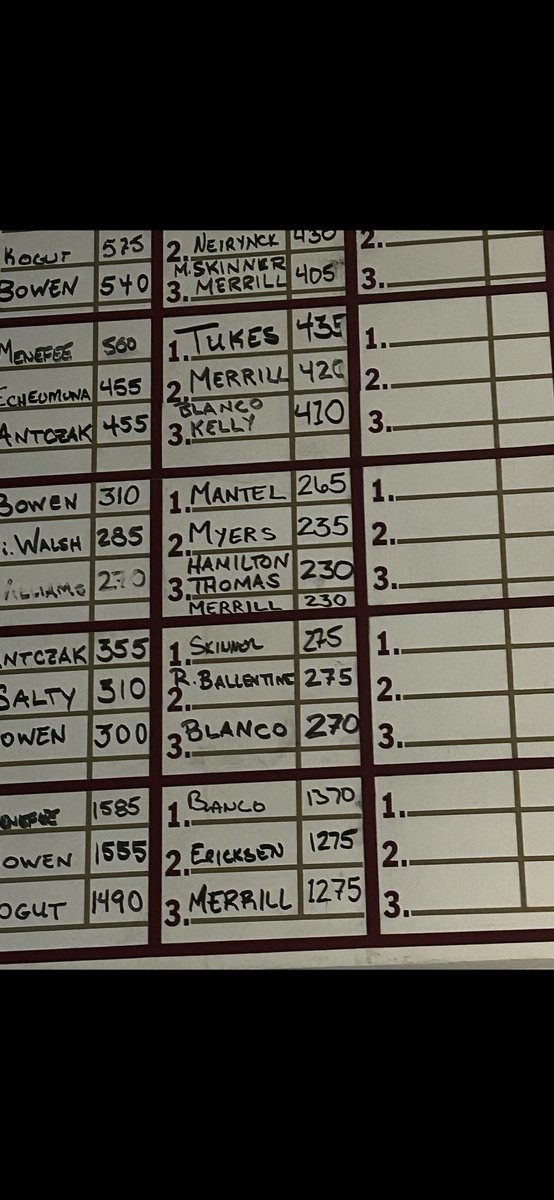 KOGUT 575 2. NEIRYNCK 430 2.
BOWEN 540 3. M. SKINNER MERRILL 405 3.
MENEFEE 560 1. TUKES 435 1.
ECHEUMUNA 455 2. MERRILL 420 2.
ANTCZAK 455 3. BLANCO KELLY 410 3.
BOWEN 310 1. MANTEL 265 1.
i. WALSH 285 2. MYERS 235 2.
ILLIAMS 270 3. HAMILTON THOMAS 230 3.
MERRILL 230
NTCZAK 355 1. SKINNER 275 1.
SALTY 310 2. R. BALLENTINE 275 2.
OWEN 300 3. BLANCO 270 3.
ENEFEE 1585 1. BLANCO 1370 1.
OWEN 1555 2. ERICKSEN 1275 2.
OGUT 1490 3. MERRILL 1275 3.